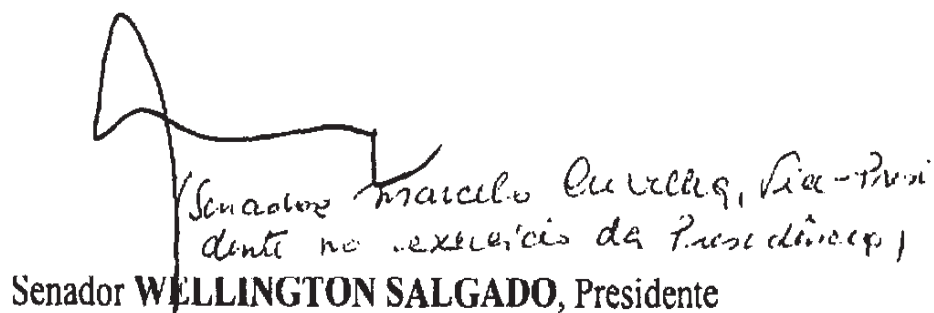 Senador Marcelo Crivella, Vice-Presi
dente no exercício da Presidência,
Senador WELLINGTON SALGADO, Presidente